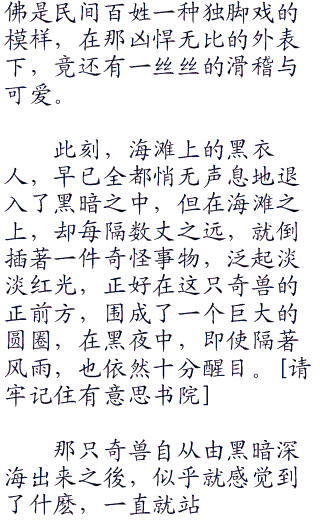 佛是民间百姓一种独脚戏的
模样，在那凶悍无比的外表
下，竟还有一丝丝的滑稽与
可爱。
此刻，海滩上的黑衣
人，早已全都悄无声息地退
入了黑暗之中，但在海滩之
上，却每隔数丈之远，就倒
插著一件奇怪事物，泛起淡
淡红光，正好在这只奇兽的
正前方，围成了一个巨大的
圆圈，在黑夜中，即使隔著
风雨，也依然十分醒目。[请
牢记住有意思书院]
那只奇兽自从由黑暗深
海出来之後，似乎就感觉到
了什麽，一直就站